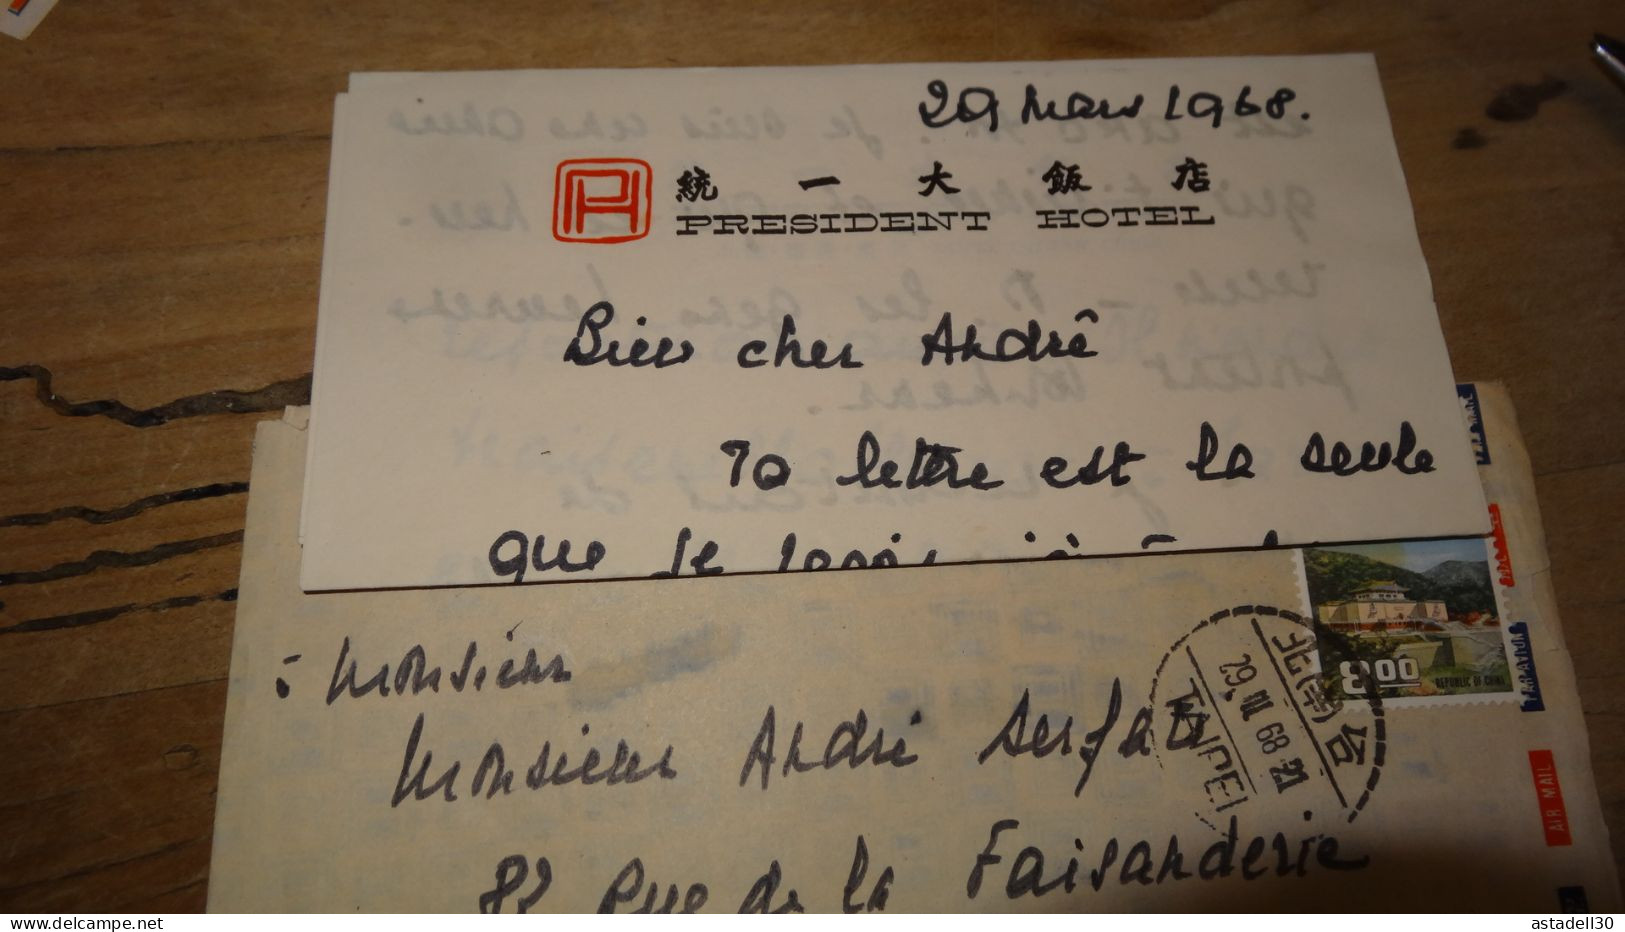 29 Mars 1968.
PH
統一大飯店
PRESIDENT HOTEL
Bien cher André
Ta lettre est la seule
que je
: Monsieur
Monsieur André
82 Rue de la Faisanderie
8.00
REPUBLIC OF CHINA
台北
29. III 68. 21
TAIPEI
PAR AVION
AIR MAIL
astadell30